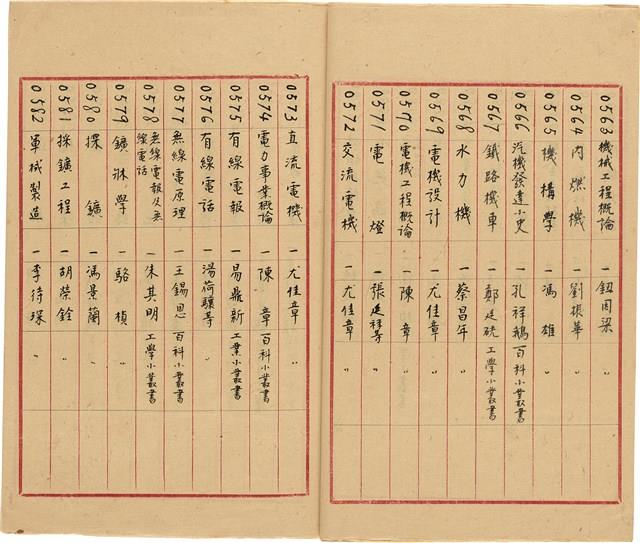 0563 機械工程概論 一 鈕因梁
0564 內燃機 一 劉振華 〃
0565 機構學 一 馮雄 〃
0566 汽機發達小史 一 孔祥鵝 百科小叢書
0567 鐵路機車 一 鄭廷硫 工學小叢書
0568 水力機 一 蔡昌年 〃
0569 電機設計 一 尤佳章 〃
0590 電機工程概論 一 陳章 〃
0571 電燈 一 張延祥等 〃
0572 交流電機 一 尤佳章 〃
0573 直流電機 一 尤佳章 〃
0574 電力事業概論 一 陳章 百科小叢書
0575 有線電報 一 易鼎新 工業小叢書
0576 有線電話 一 湯荷驤等 〃
0577 無線電原理 一 王錫恩 百科小叢書
0578 無線電報及無線電話 一 朱其明 工學小叢書
0579 鑛牀學 一 駱楨 〃
0580 探鑛 一 馮景蘭 〃
0581 採鑛工程 一 胡榮銓 〃
0582 軍械製造 一 李待琛 〃